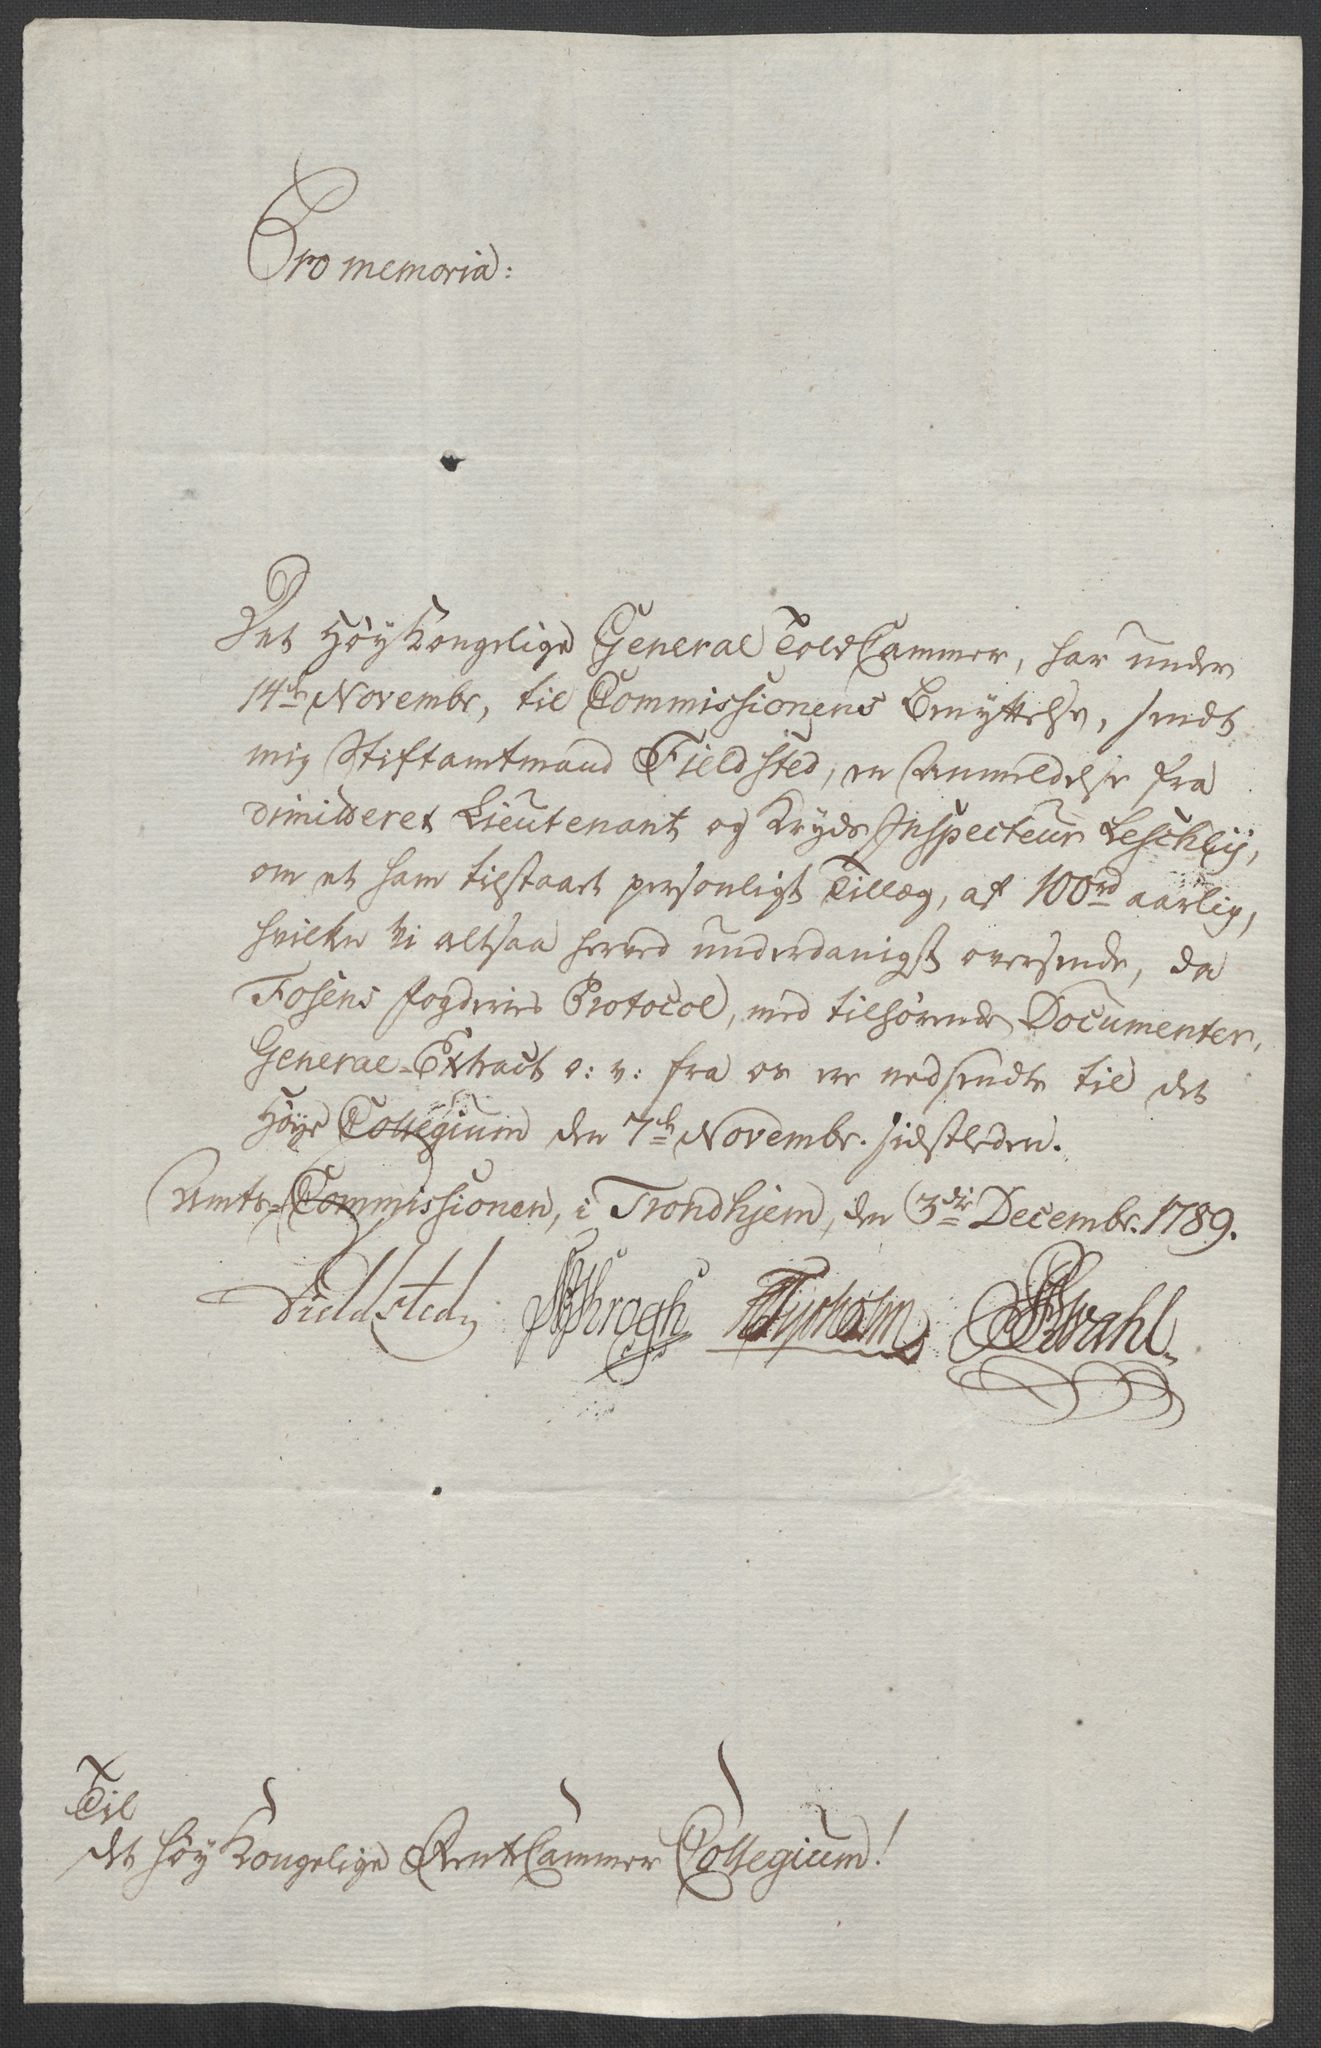 Pro memoria:
Det Høy Kongelige General Told Cammer, har under
14de Novembr, til Commissionens Benyttelse, sendt
mig Stiftamtmand Fieldsted, en Anmeldelse fra
dimitteret Lieutenant og Kryds Inspecteur Leschly,
om et ham tilstaaet personligt Tillæg, af 100rd aarlig,
hvilken vi altsaa herved underdanigst oversende, da
Fosens Fogderies Protocol, med tilhørende Documenter,
General-Extract o: v: fra os ere nedsendte til det
Høye Collegium den 7de Novembr. sidstleden.
Amts-Commissionen, i Trondhjem, den 3die Decembr. 1789.
Fieldsted Krogh Tyrholm Wahl
Til
det høy Kongelige RentCammer Collegium!